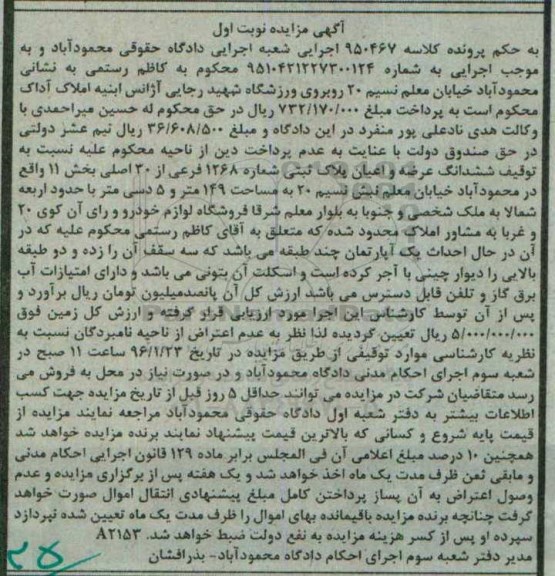 آگهی مزایده نوبت اول
به حکم پرونده کلاسه ۹۵۰۴۶۷ اجرایی شعبه اجرایی دادگاه حقوقی محمودآباد و به
موجب اجرایی به شماره ۹۵۱۰۴۲۱۲۲۷۳۰۰۱۲۴ محکوم به کاظم رستمی به نشانی
محمودآباد خیابان معلم نسیم ۲۰ روبروی ورزشگاه شهید رجایی آژانس ابنیه املاک آداک
محکوم است به پرداخت مبلغ ۷۳۲/۱۷۰/۰۰۰ ریال در حق محکوم له حسین میراحمدی با
وکالت هدی نادعلی پور منفرد در این دادگاه و مبلغ ۳۶/۶۰۸/۵۰۰ ریال نیم عشر دولتی
در حق صندوق دولت با عنایت به عدم پرداخت دین از ناحیه محکوم علیه نسبت به
توقیف ششدانگ عرصه و اعیان پلاک ثبتی شماره ۱۲۶۸ فرعی از ۳۰ اصلی بخش ۱۱ واقع
در محمودآباد خیابان معلم نبش نسیم ۲۰ به مساحت ۱۴۹ متر و ۵ دسی متر با حدود اربعه
شمالا به ملک شخصی و جنوبا به بلوار معلم شرقا فروشگاه لوازم خودرو و رای آن کوی ۲۰
و غربا به مشاور املاک محدود شده که متعلق به آقای کاظم رستمی محکوم علیه که در
آن در حال احداث یک آپارتمان چند طبقه می باشد که سه سقف آن را زده و دو طبقه
بالایی را دیوار چینی با آجر کرده است و اسکلت آن بتونی می باشد و دارای امتیازات آب
برق گاز و تلفن قابل دسترس می باشد ارزش کل آن پانصدمیلیون تومان ریال برآورد و
پس از آن توسط کارشناس این اجرا مورد ارزیابی قرار گرفته و ارزش کل زمین فوق
۵/۰۰۰/۰۰۰/۰۰۰ ریال تعیین گردیده لذا نظر به عدم اعتراض از ناحیه نامبردگان نسبت به
نظریه کارشناسی موارد توقیفی از طریق مزایده در تاریخ ۹۶/۱/۲۳ ساعت ۱۱ صبح در
شعبه سوم اجرای احکام مدنی دادگاه محمودآباد و در صورت نیاز در محل به فروش می
رسد متقاضیان شرکت در مزایده می توانند حداقل ۵ روز قبل از تاریخ مزایده جهت کسب
اطلاعات بیشتر به دفتر شعبه اول دادگاه حقوقی محمودآباد مراجعه نمایند مزایده از
قیمت پایه شروع و کسانی که بالاترین قیمت پیشنهاد نمایند برنده مزایده خواهد شد
همچنین ۱۰ درصد مبلغ اعلامی آن فی المجلس برابر ماده ۱۲۹ قانون اجرایی احکام مدنی
و مابقی ثمن ظرف مدت یک ماه اخذ خواهد شد و یک هفته پس از برگزاری مزایده و عدم
وصول اعتراض به آن پساز پرداختن کامل مبلغ پیشنهادی انتقال اموال صورت خواهد
گرفت چنانچه برنده مزایده باقیمانده بهای اموال را ظرف مدت یک ماه تعیین شده نپردازد
سپرده او پس از کسر هزینه مزایده به نفع دولت ضبط خواهد شد. A۲۱۵۳
مدیر دفتر شعبه سوم اجرای احکام دادگاه محمودآباد- بذرافشان